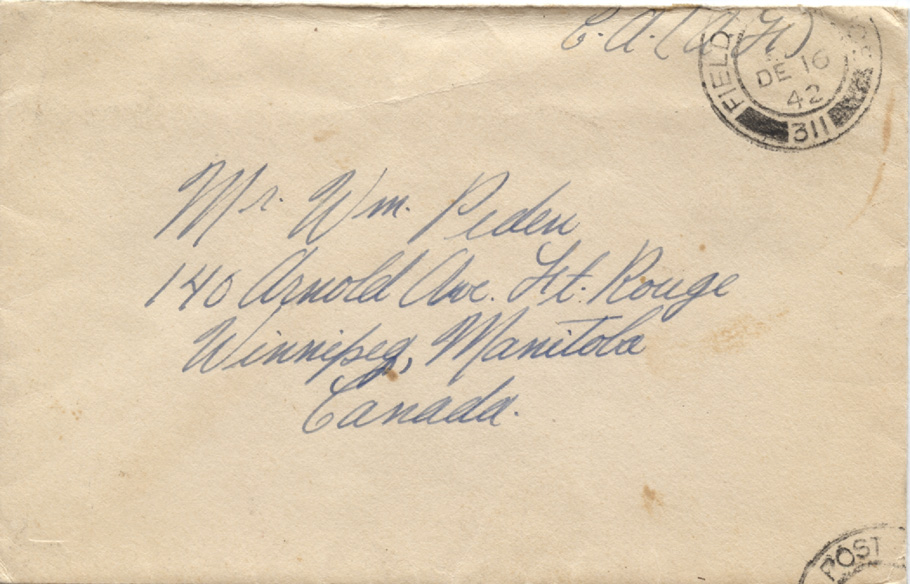 C.A.(A.F.)
FIELD
DE 16
42
311
Mr. Wm. Peden
140 Arnold Ave. Ft. Rouge
Winnipeg, Manitoba
Canada.
POST